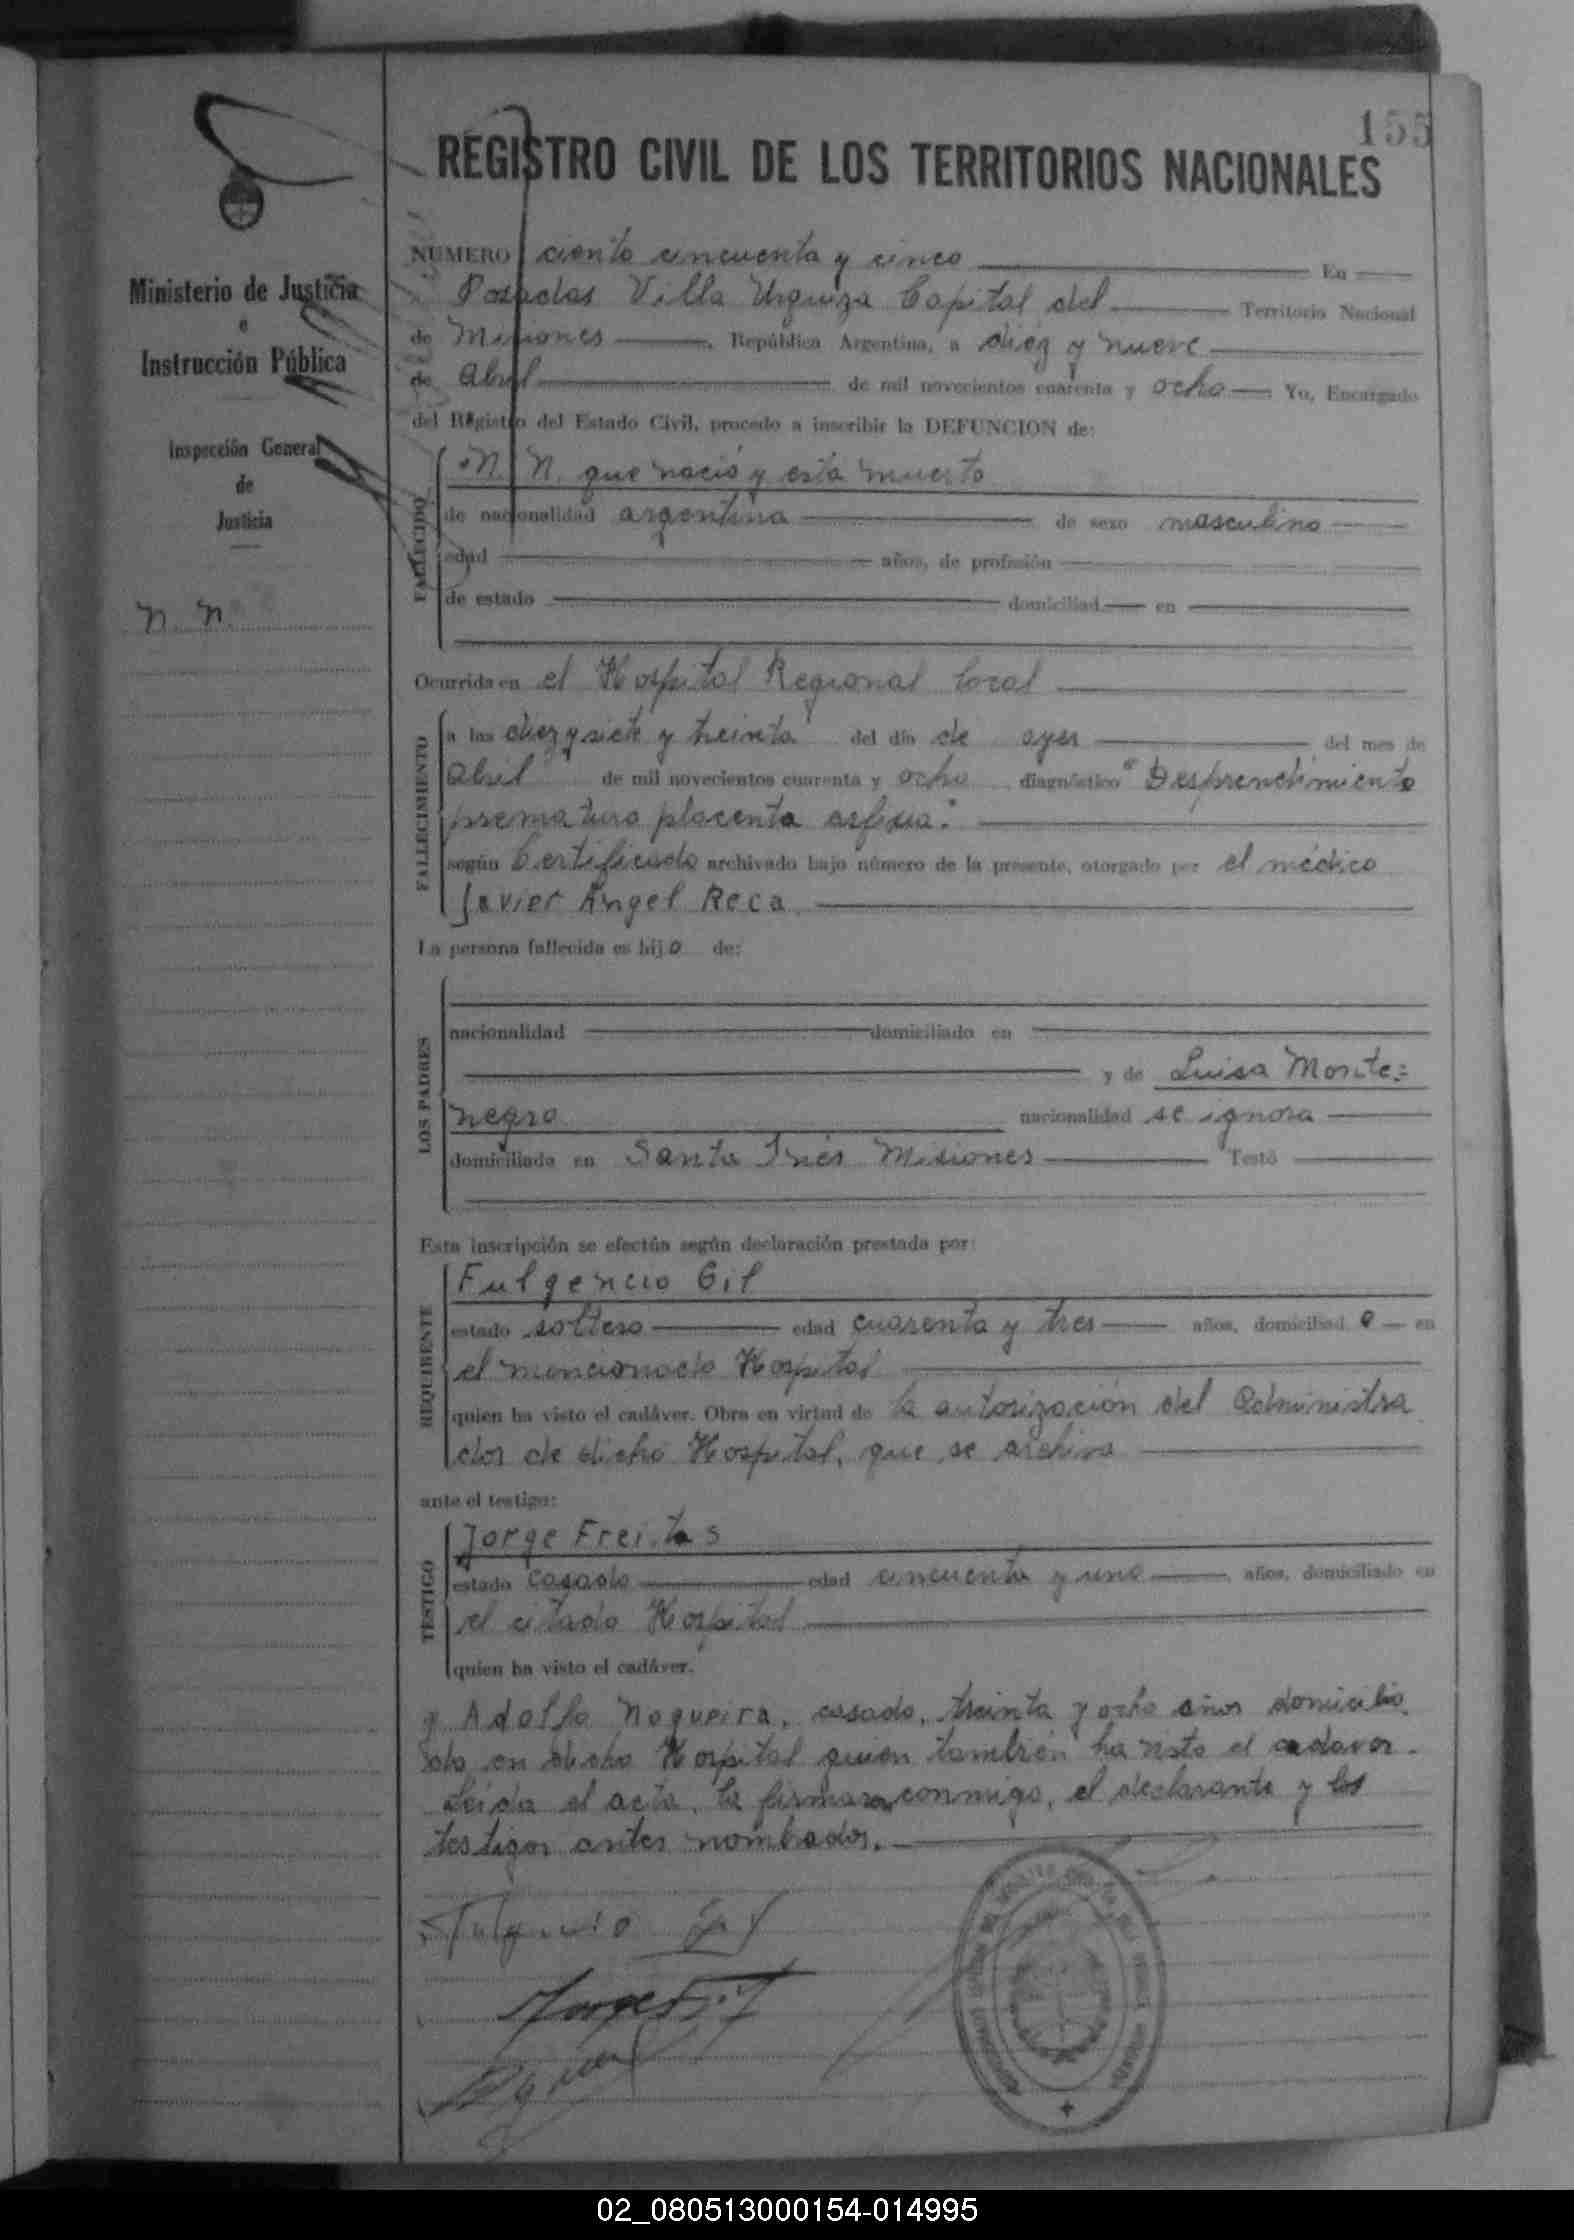 155
REGISTRO CIVIL DE LOS TERRITORIOS NACIONALES
Ministerio de Justicia
e
Instrucción Pública
Inspección General
de
Justicia
N. N.
NUMERO ciento cincuenta y cinco En
Posadas Villa Urquiza Capital del Territorio Nacional
de Misiones República Argentina, a diez y nueve
de Abril de mil novecientos cuarenta y ocho Yo, Encargado
del Registro del Estado Civil, procedo a inscribir la DEFUNCION de:
FALLECIDO
N. N. que nació y está muerto
de nacionalidad argentina de sexo masculino
edad años, de profisión
de estado domiciliad en
Ocurrida en el Hospital Regional local
FALLECIMIENTO
a las diez y siete y treinta del día de ayer del mes de
Abril de mil novecientos cuarenta y ocho diagnóstico "Desprendimiento
prematuro placenta asfixia."
según Certificado archivado bajo número de la presente, otorgado por el médico
Javier Angel Reca
La persona fallecida es hijo de:
LOS PADRES
nacionalidad domiciliado en
y de Luisa Monte=
negro nacionalidad se ignora
domiciliada en Santa Inés Misiones Testó
Esta inscripción se efectúa según declaración prestada por:
REQUIRENTE
Fulgencio Gil
estado soltero edad cuarenta y tres años, domiciliad o en
el mencionado Hospital
quien ha visto el cadáver. Obra en virtud de la autorización del Administra
dor de dicho Hospital, que se archiva
ante el testigo:
TESTIGO
Jorge Freitas
estado casado edad cincuenta y uno años, domiciliado en
el citado Hospital
quien ha visto el cadáver.
y Adolfo Nogueira, casado, treinta y ocho años domicilia
do en dicho Hospital quien también ha visto el cadaver.
Leída el acta, la firmaron conmigo, el declarante y los
testigos antes nombrados.
Fulgencio Gil
02_080513000154-014995